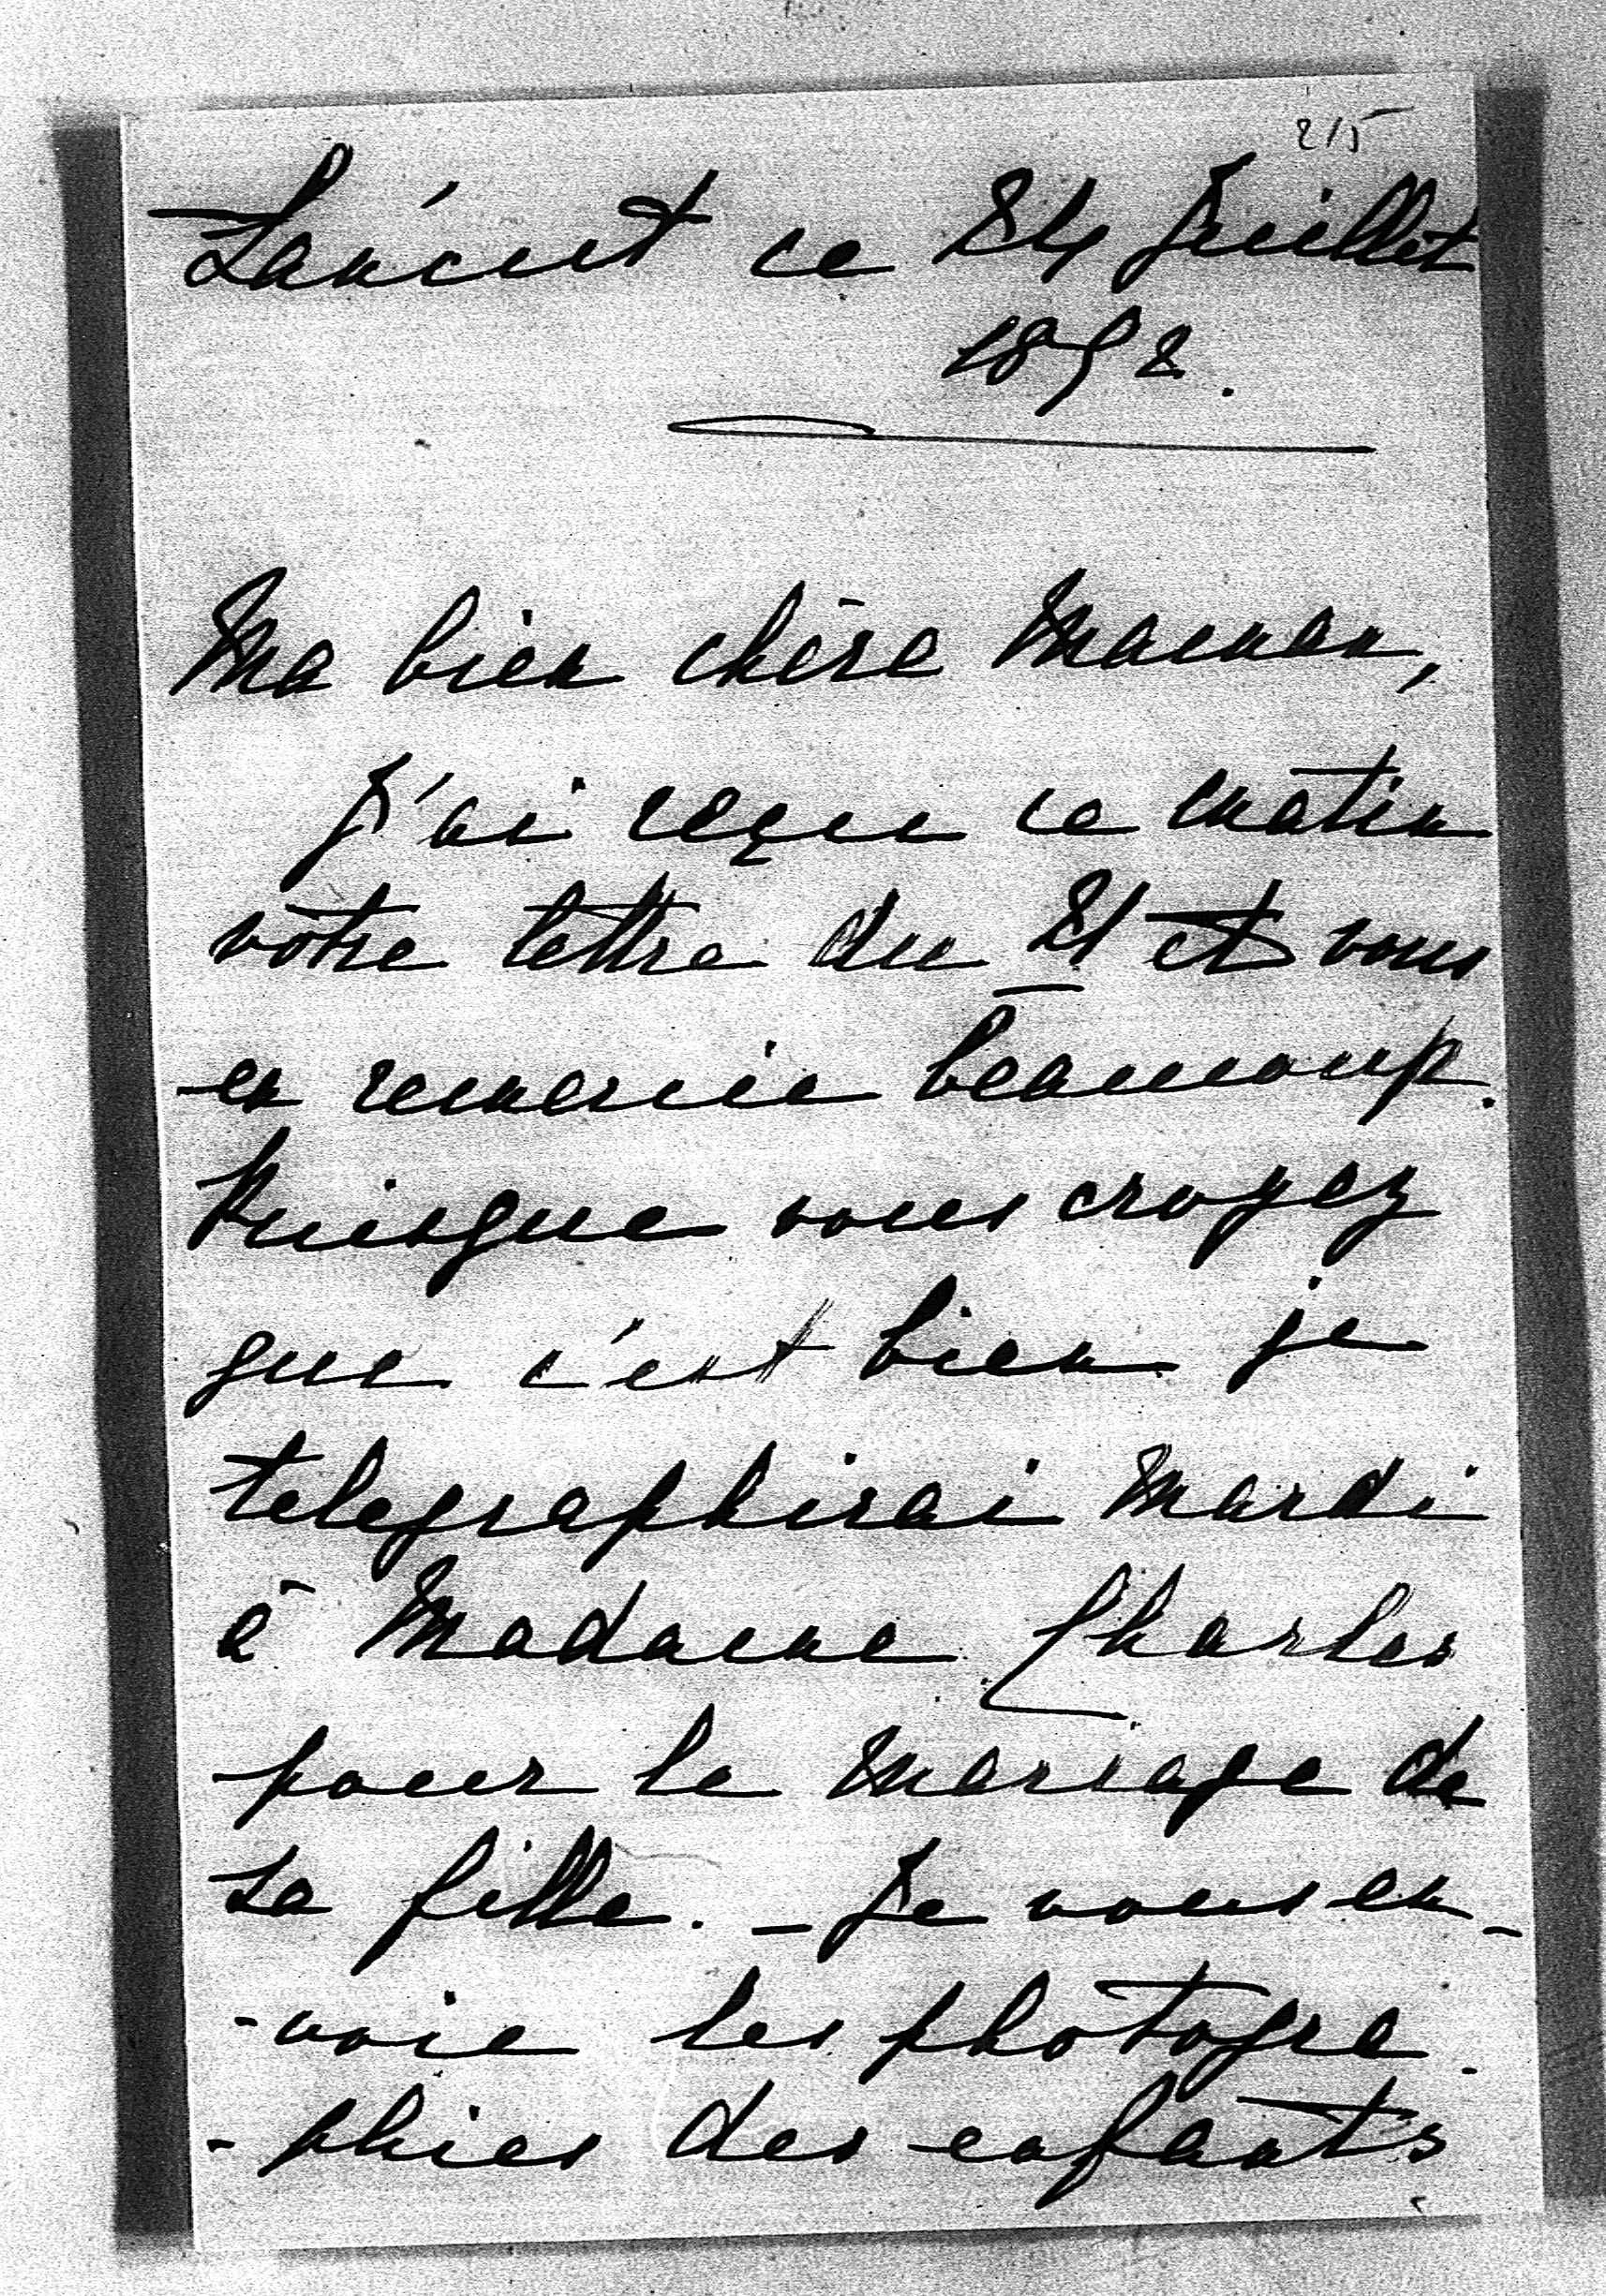 215
Łańcut ce 24 Juillet
1892.
Ma bien chère Maman,
J'ai reçue ce matin
vôtre lettre du 21 et vous
en remercie beaucoup.
Puisque vous croyez
que c'est bien je
telegraphirai Mardi
à Madame Charles
pour le mariage de
sa fille. – Je vous en-
-voie les photogra-
-phies des enfants